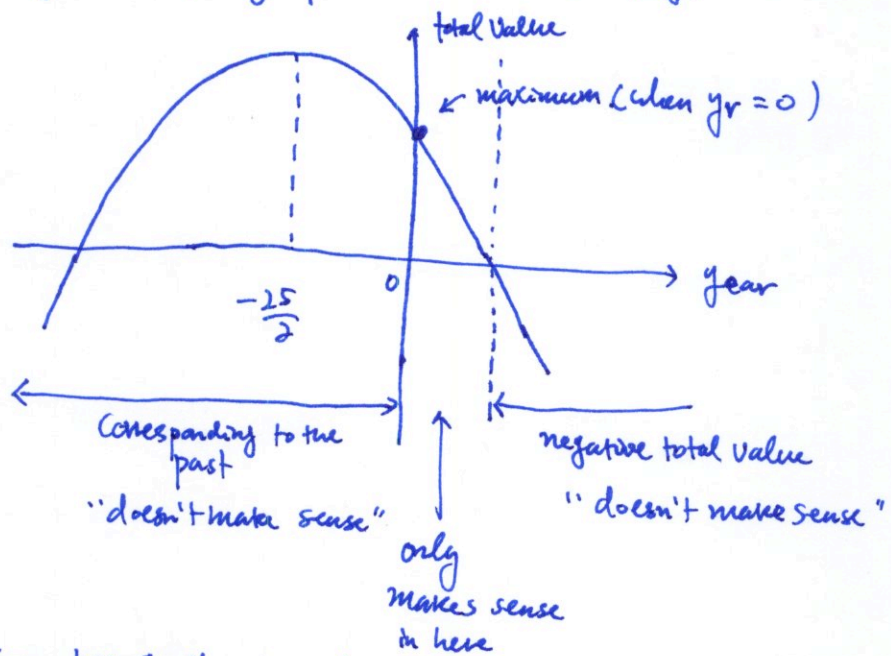 total value
maximum (when yr = 0)
0
year
-25/2
Corresponding to the
past
"doesn't make sense"
negative total value
"doesn't make sense"
only
makes sense
in here